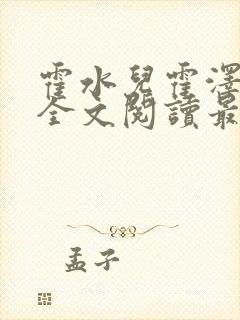 霍水兒霍澤
全文閱讀最
孟子